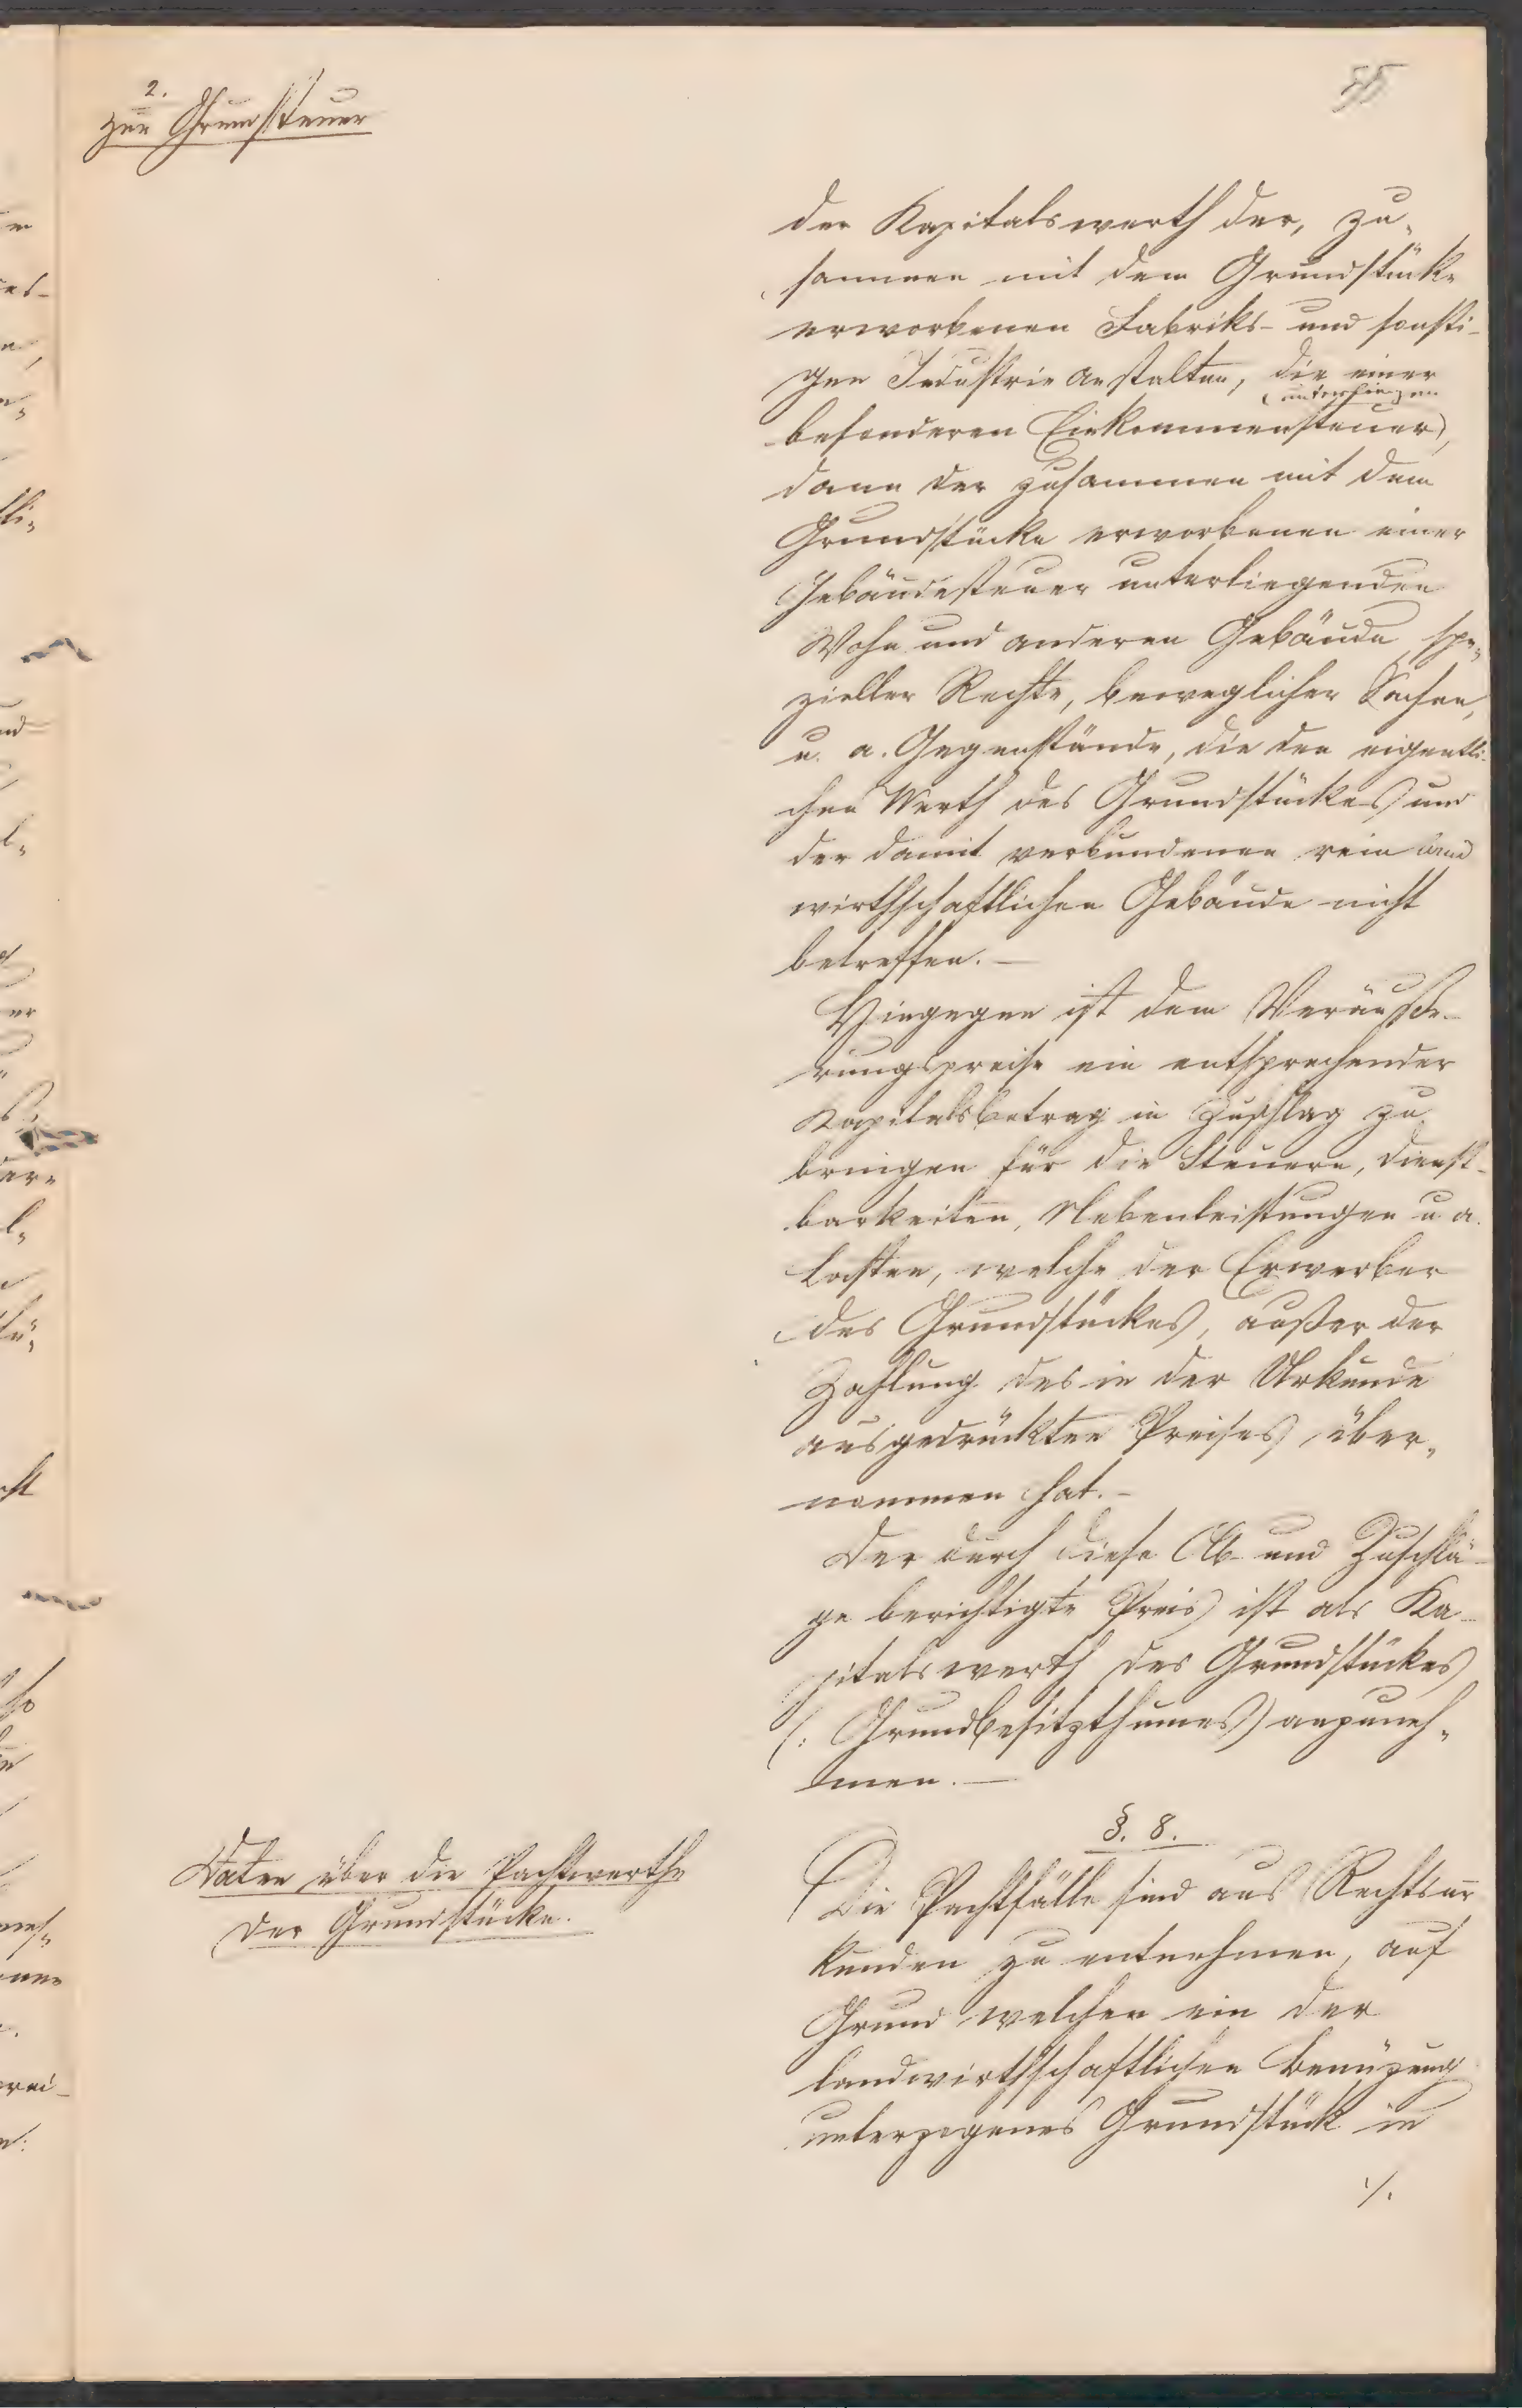 2.
zur Grundsteuer
der Kapitalswerth der, zu-
sammen mit dem Grundstück-
erworbenen Fabriks- und sonsti-
gen Industrie Anstalten, die einer
unterliegen
besonderen Einkommensteuer,
dann der zusammen mit dem
Grundstücke erworbenen einer
Gebäudesteuer unterliegenden
Wohn und anderen Gebäude, spe-
zieller Rechte, beweglicher Sachen,
u. a. Gegenstände, die den eigentli-
chen Werth des Grundstückes und
der damit verbundenen rein land
wirthschaftlichen Gebäude nicht
betreffen. —
Hingegen ist dem Veräuße-
rungspreise ein entsprechender
Kapitalsbetrag in Zuschlag zu
bringen für die Steuern, Dienst-
barkeiten, Nebenleistungen u a.
Lasten, welche der Erwerber
des Grundstückes, außer der
Zahlung des in der Urkunde
ausgedrückten Preises, über-
nommen hat. -
Der durch diese Ab- und Zuschlä-
ge berichtigte Preis ist als Ka-
pitalswerth des Grundstückes
(: Grundbesitzthumes) anzuneh-
men. —
§. 8.
Daten über die Pachtwerthe
der Grundstücke.
Die Pachtfälle sind aus Rechtsur
kunden zu entnehmen, auf
Grund welcher ein der
landwirthschaftlichen Benüzung
unterzogenes Grundstück in
./.